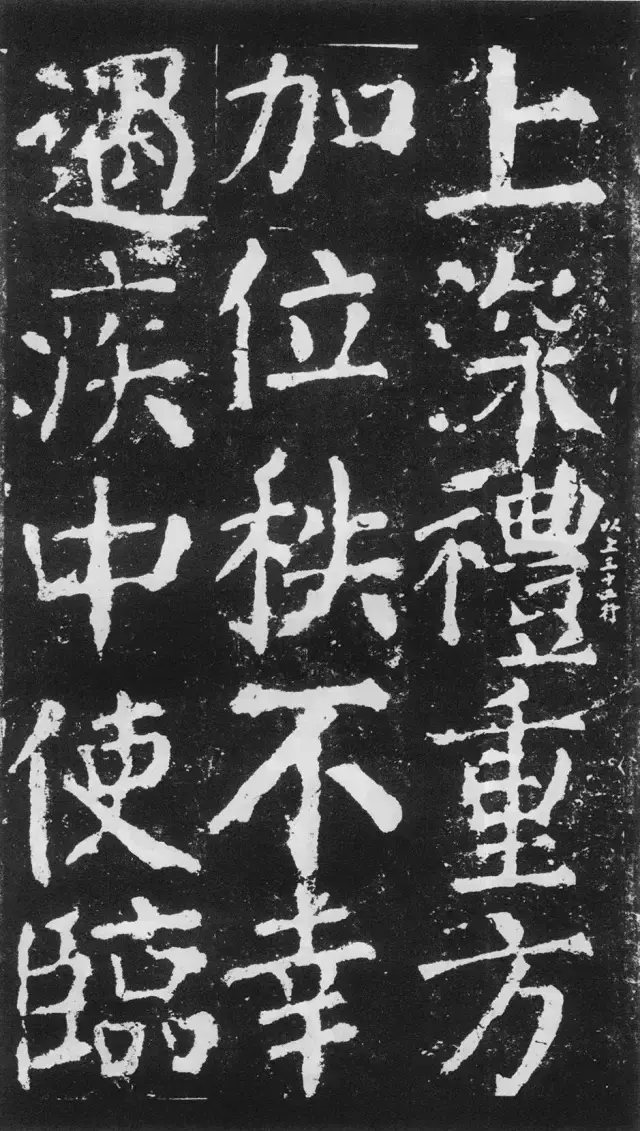 上深禮重方
以上三十五行
加位秩不幸
遇疾中使臨